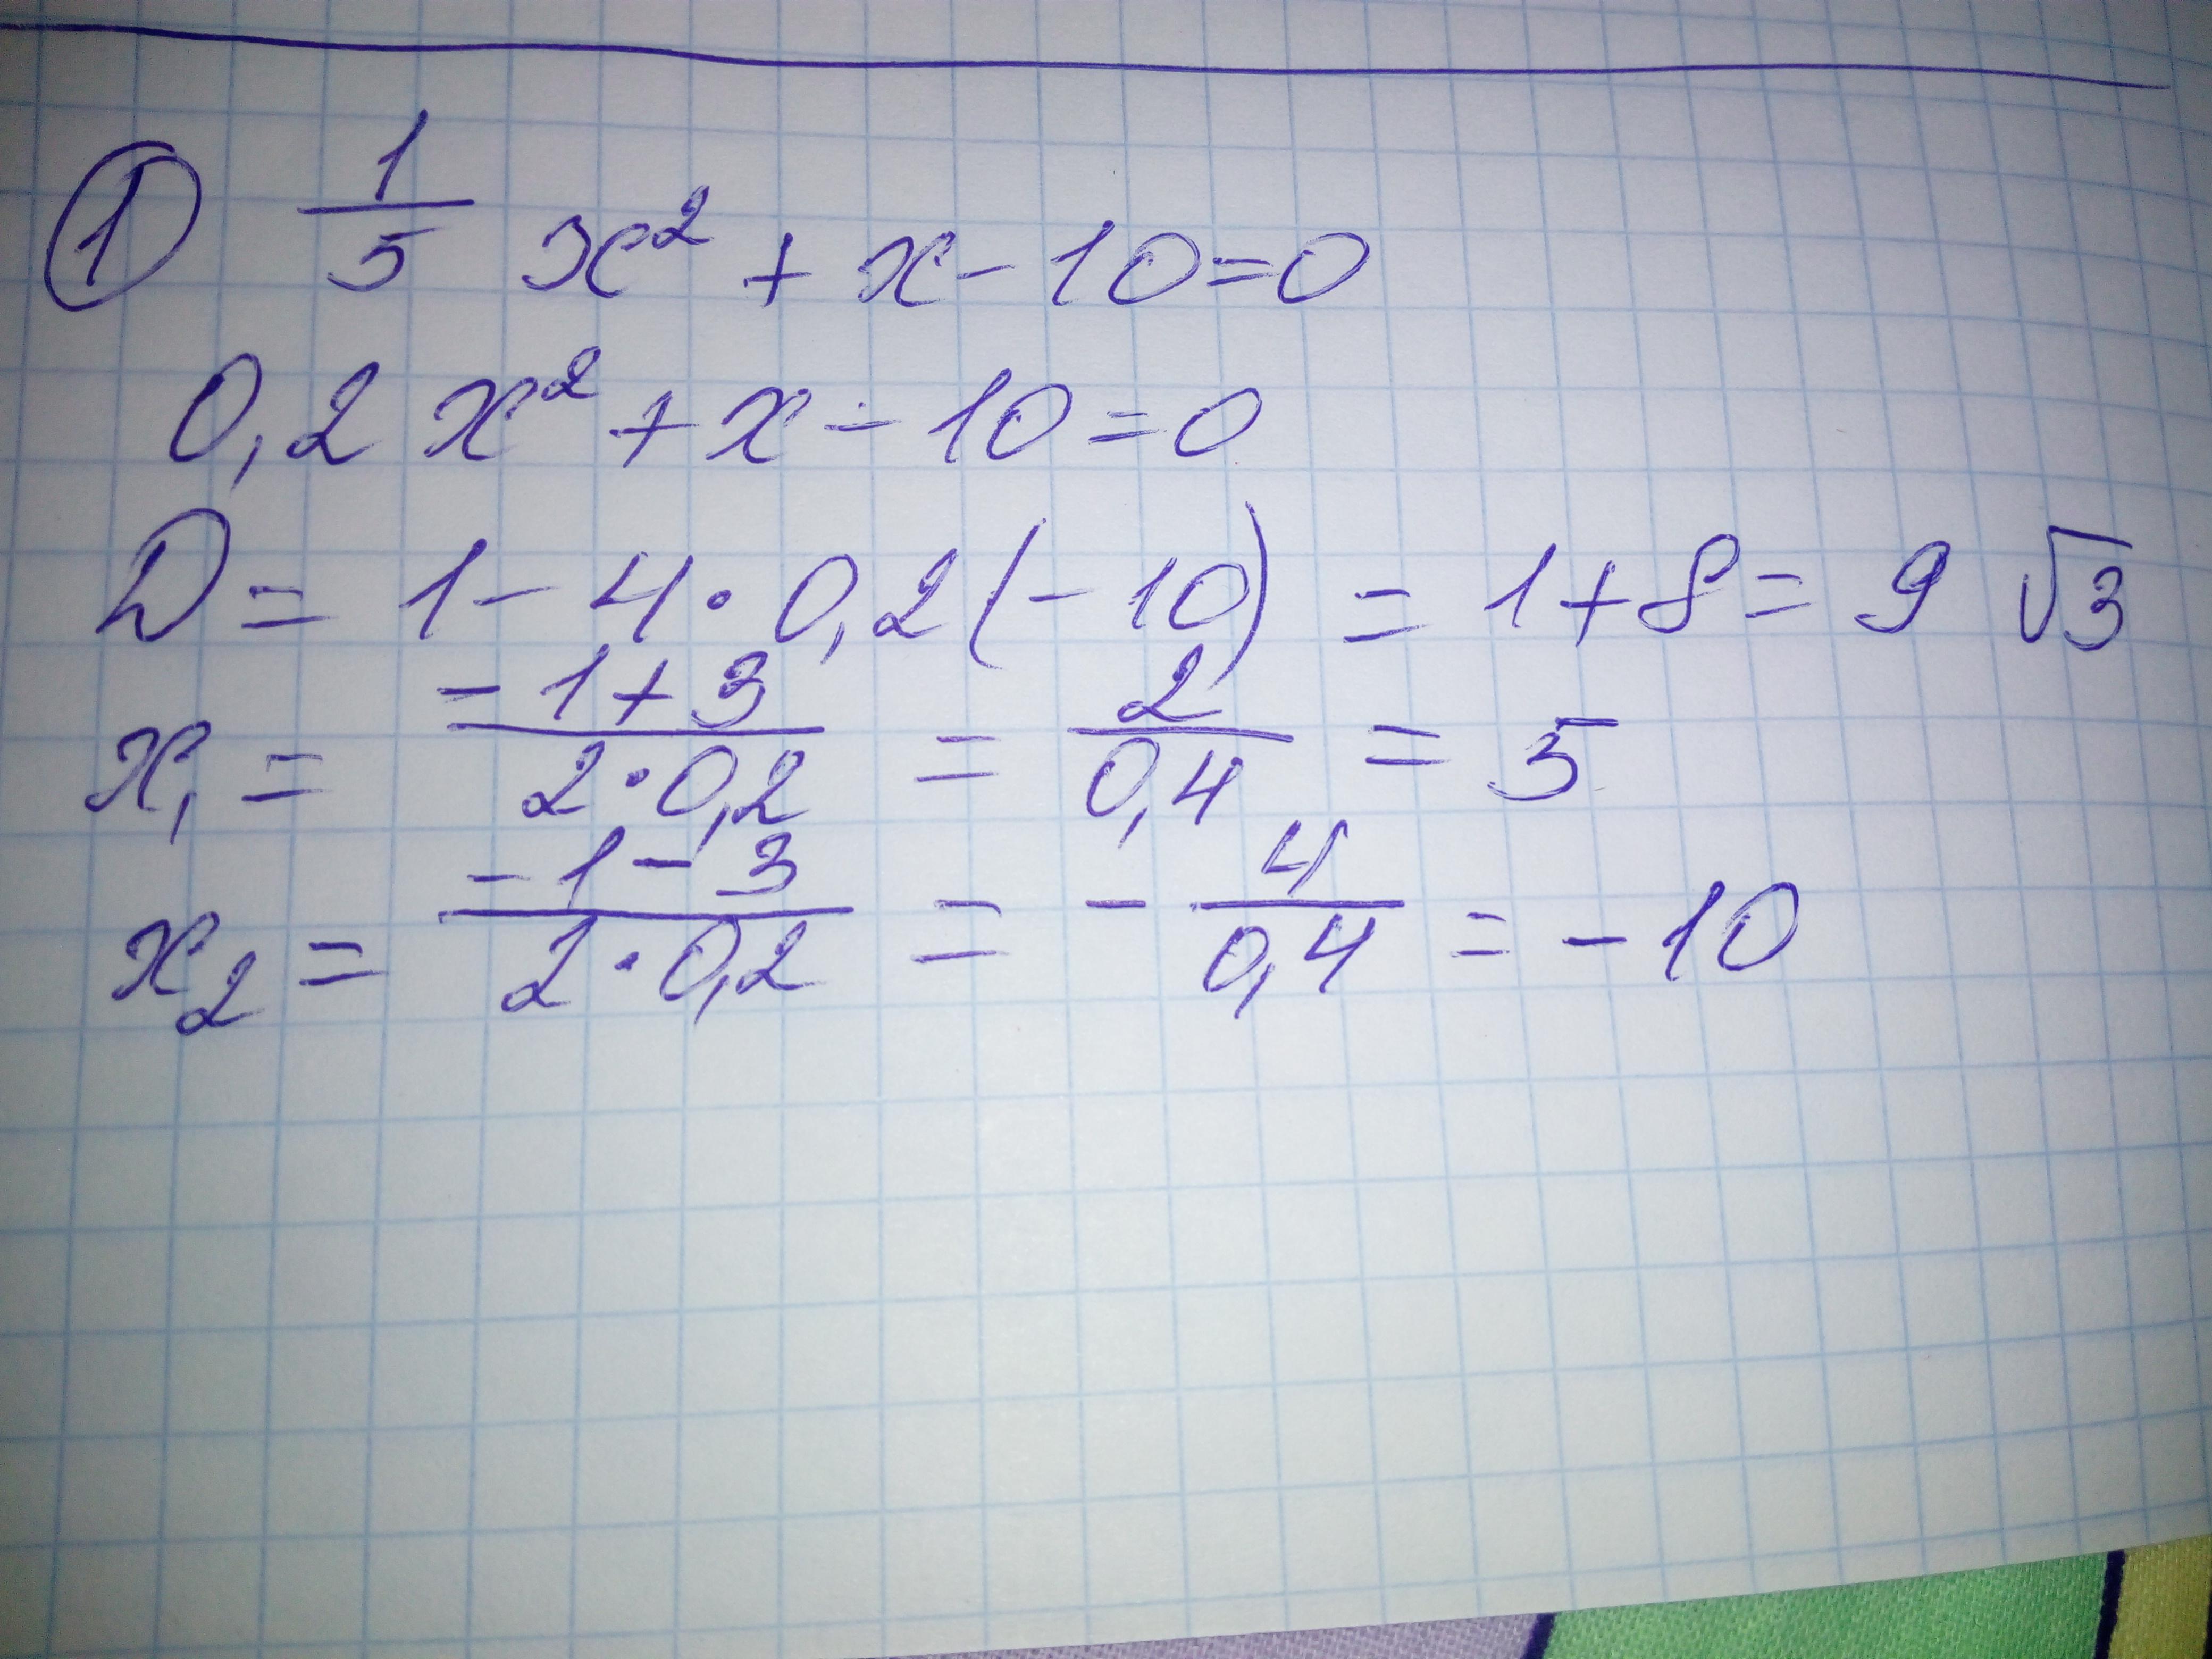 ① 1/5 x² + x - 10 = 0
0,2 x² + x - 10 = 0
D = 1 - 4 · 0,2 (-10) = 1 + 8 = 9 √3
x₁ = (-1 + 3)/(2 · 0,2) = 2/0,4 = 5
x₂ = (-1 - 3)/(2 · 0,2) = - 4/0,4 = -10